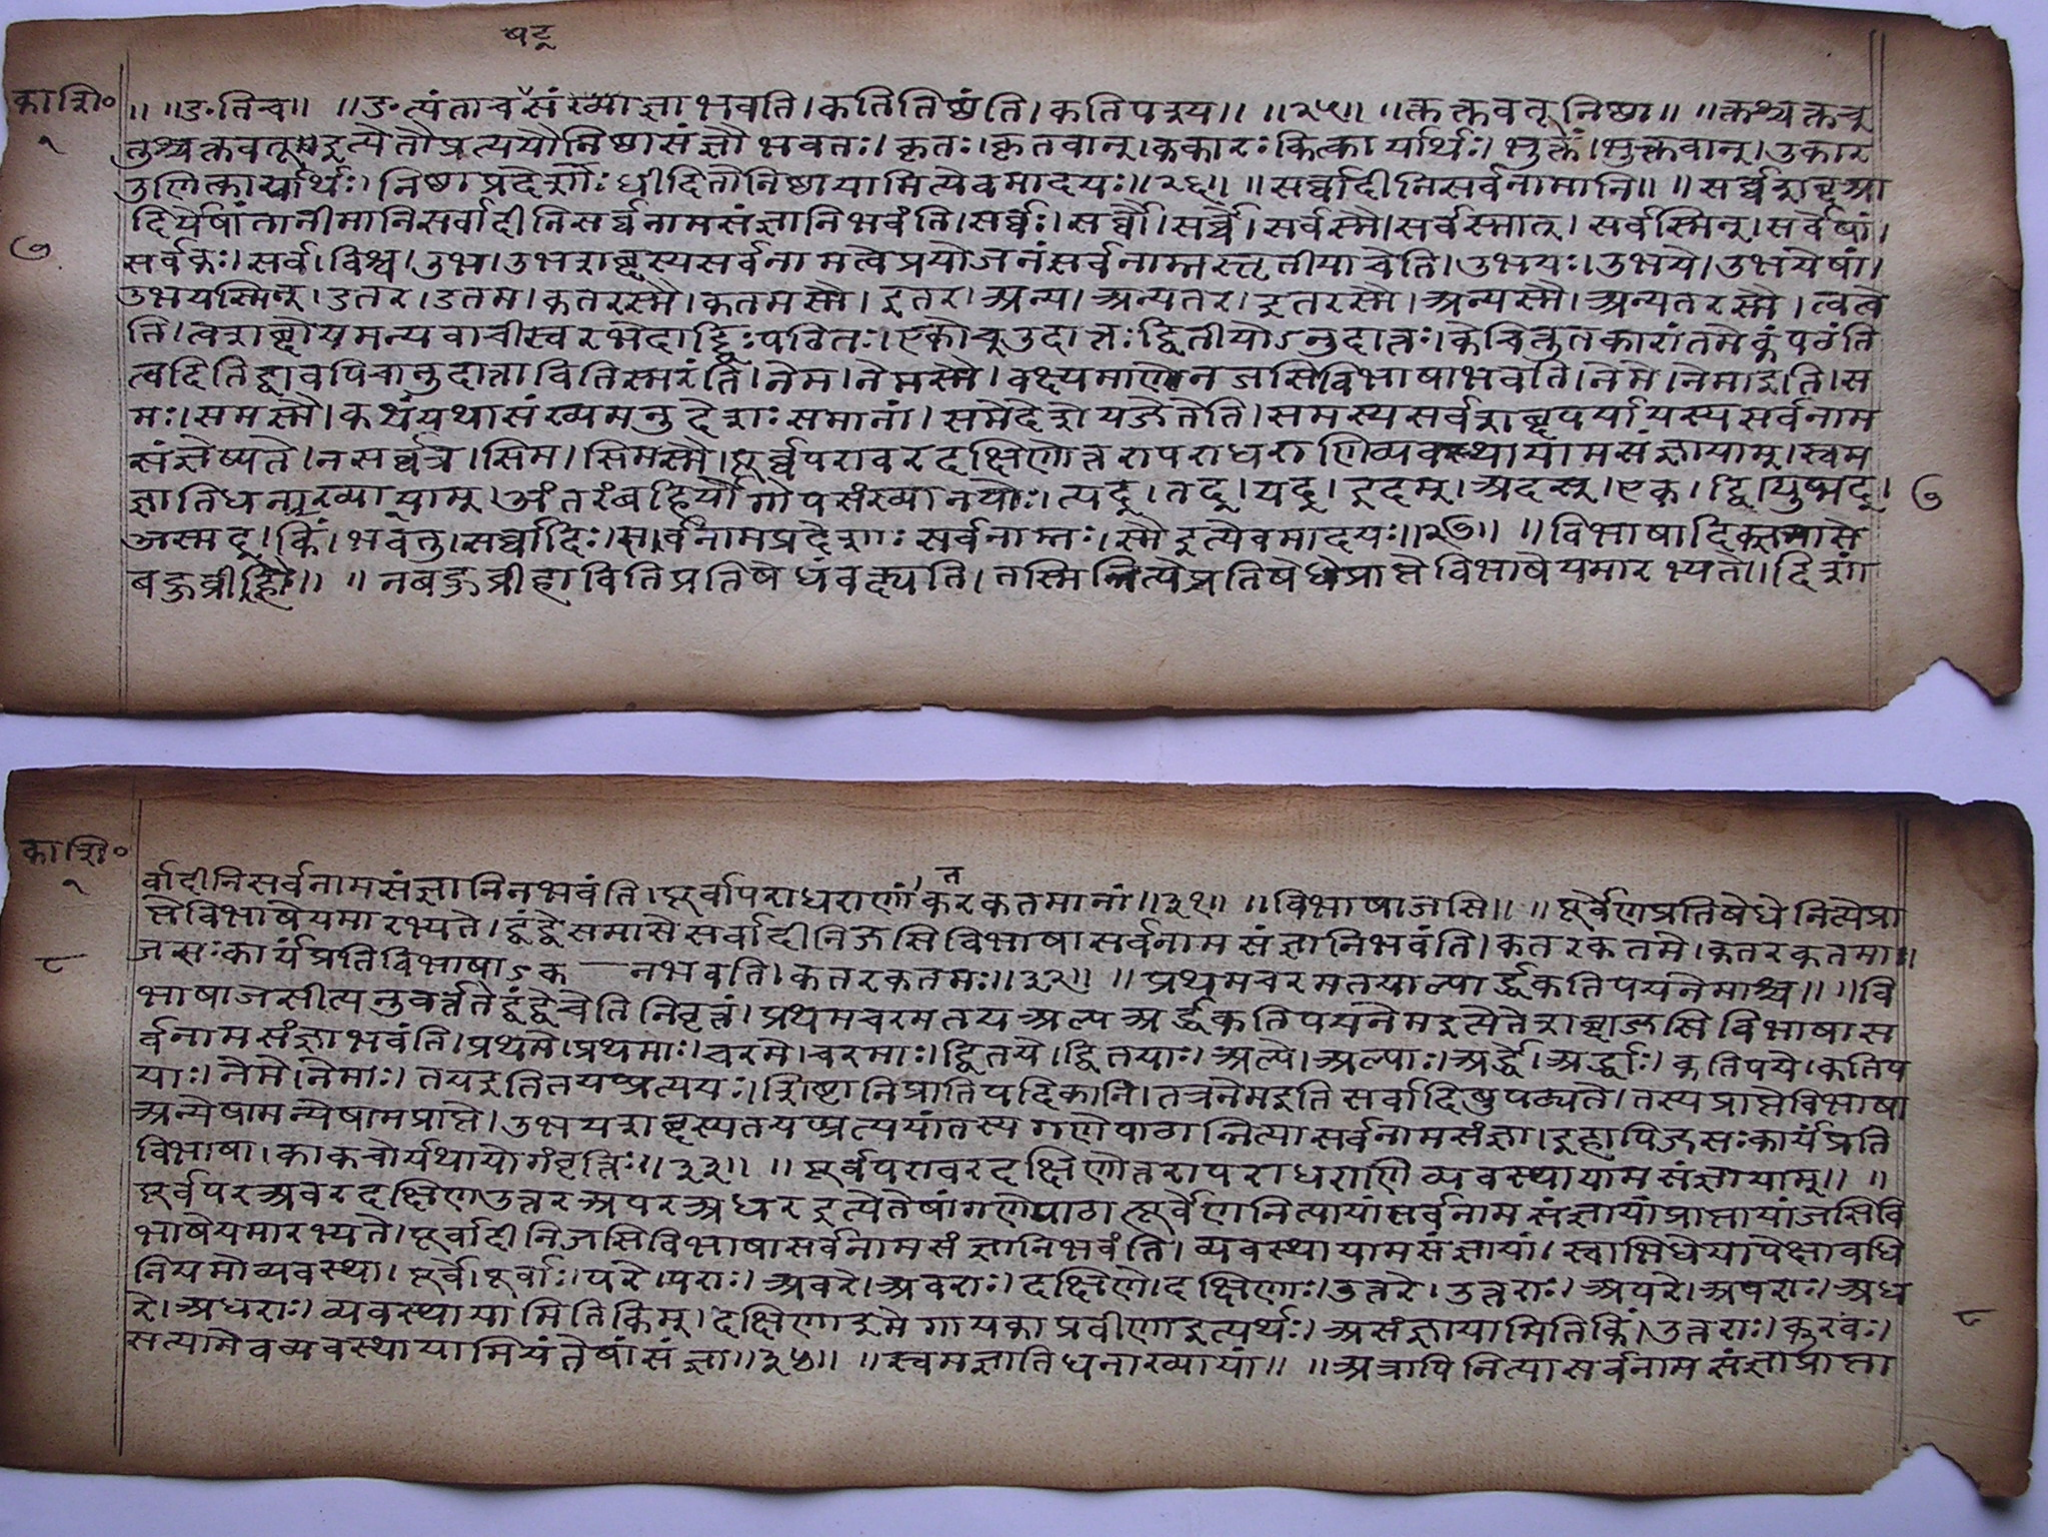 षट्
काशि०
१
७
॥ ॥डतिच॥ ॥डत्यंताचसंख्याज्ञाभवति।कतितिष्ठंति।कतिपश्य॥ ॥२५॥ ॥क्तक्तवतूनिष्ठा॥ ॥क्तश्चक्तव
तुश्चक्तवतू॥इत्येतौप्रत्ययौनिष्ठासंज्ञौभवतः।कृतः।कृतवान्।ककारःकित्कार्यार्थः।भुक्तं।भुक्तवान्।उकार
उगित्कार्यार्थः।निष्ठाप्रदेशाःश्वीदितोनिष्ठायामित्येवमादयः॥२६॥ ॥सर्वादीनिसर्वनामानि॥ ॥सर्वशब्दआ
दिर्येषांतानीमानिसर्वादीनिसर्वनामसंज्ञानिभवंति।सर्वः।सर्वौ।सर्वे।सर्वस्मै।सर्वस्मात्।सर्वस्मिन्।सर्वेषां।
सर्वकः।सर्व।विश्व।उभ।उभशब्दस्यसर्वनामत्वेप्रयोजनंसर्वनाम्नस्तृतीयाचेति।उभयः।उभये।उभयेषां।
उभयस्मिन्।डतर।डतम।कतरस्मै।कतमस्मै।इतर।अन्य।अन्यतर।इतरस्मै।अन्यस्मै।अन्यतरस्मै।त्वत्वे
ति।त्वशब्दोयमन्यवाचीस्वरभेदाद्द्विःपठितः।एकोच्उदात्तःद्वितीयोऽनुदात्तः।केचित्तुतकारांतमेकंपठंति
त्वदितिद्वावपिचानुदात्तावितिस्मरंति।नेम।नेमस्मै।वक्ष्यमाणेनजसिविभाषाभवति।नेमे।नेमाइति।स
मः।समस्मै।कथंयथासंख्यमनुदेशःसमानां।समेदेशेयजेतेति।समस्यसर्वशब्दपर्यायस्यसर्वनाम
संज्ञेष्यते।नसर्वत्र।सिम।सिमस्मै।पूर्वपरावरदक्षिणोत्तरापराधराणिव्यवस्थायामसंज्ञायाम्।स्वम
ज्ञातिधनाख्यायाम्।अंतरंबहिर्योगोपसंख्यानयोः।त्यद्।तद्।यद्।इदम्।अदस्।एक।द्वि।युष्मद्।
अस्मद्।किं।भवतु।सर्वादिः।सर्वनामप्रदेशाःसर्वनाम्नः।स्मैइत्येवमादयः॥२७॥ ॥विभाषादिक्समासे
बहुव्रीहौ॥ ॥नबहुव्रीहावितिप्रतिषेधंवक्ष्यति।तस्मिन्नित्येप्रतिषेधेप्राप्तेविभाषेयमारभ्यते॥दिशां
७
काशि०
१
८
त
र्वादीनिसर्वनामसंज्ञानिनभवंति।पूर्वापराधराणां।करकतमानां॥३१॥ ॥विभाषाजसि॥ ॥पूर्वेणप्रतिषेधेनित्येप्रा
प्तेविभाषेयमारभ्यते।द्वंद्वेसमासेसर्वादीनिजसिविभाषासर्वनामसंज्ञानिभवंति।कतरकतमे।कतरकतमाः।
जसःकार्यंप्रतिविभाषाऽक—नभवति।कतरकतमः॥३२॥ ॥प्रथमचरमतयाल्पार्द्धकतिपयनेमाश्च॥ ॥वि
भाषाजसीत्यनुवर्त्ततेद्वंद्वेचेतिनिवृत्तं।प्रथमचरमतयअल्पअर्द्धकतिपयनेमइत्येतेशब्दाजसिविभाषास
र्वनामसंज्ञाभवंति।प्रथमे।प्रथमाः।चरमे।चरमाः।द्वितये।द्वितयाः।अल्पे।अल्पाः।अर्द्धे।अर्द्धाः।कतिपये।कतिप
याः।नेमे।नेमाः।तयइतितयप्प्रत्ययः।शिष्टानिप्रातिपदिकानि।तत्रनेमइतिसर्वादिषुपठ्यते।तस्यप्राप्तेविभाषा
अन्येषामन्येषामप्राप्ते।उभयशब्दस्यतयप्प्रत्ययांतस्यगणेपाठान्नित्यासर्वनामसंज्ञा।इहापिजसःकार्यंप्रति
विभाषा।काकचोर्यथायोगंवृत्तिः॥३३॥ ॥पूर्वपरावरदक्षिणोत्तरापराधराणिव्यवस्थायामसंज्ञायाम्॥ ॥
पूर्वपरअवरदक्षिणउत्तरअपरअधरइत्येतेषांगणेपाठात्पूर्वेणनित्यायांसर्वनामसंज्ञायांप्राप्तायांजसिवि
भाषेयमारभ्यते।पूर्वादीनिजसिविभाषासर्वनामसंज्ञानिभवंति।व्यवस्थायामसंज्ञायां।स्वाभिधेयापेक्षावधि
नियमोव्यवस्था।पूर्वे।पूर्वाः।परे।पराः।अवरे।अवराः।दक्षिणे।दक्षिणाः।उत्तरे।उत्तराः।अपरे।अपराः।अध
रे।अधराः।व्यवस्थायामितिकिम्।दक्षिणाइमेगायकाप्रवीणाइत्यर्थः।असंज्ञायामितिकिं।उत्तराः।कुरवः।
सत्यामेवव्यवस्थायामियंतेषांसंज्ञा॥३५॥ ॥स्वमज्ञातिधनाख्यायां॥ ॥अत्रापिनित्यासर्वनामसंज्ञाप्राप्ता
८